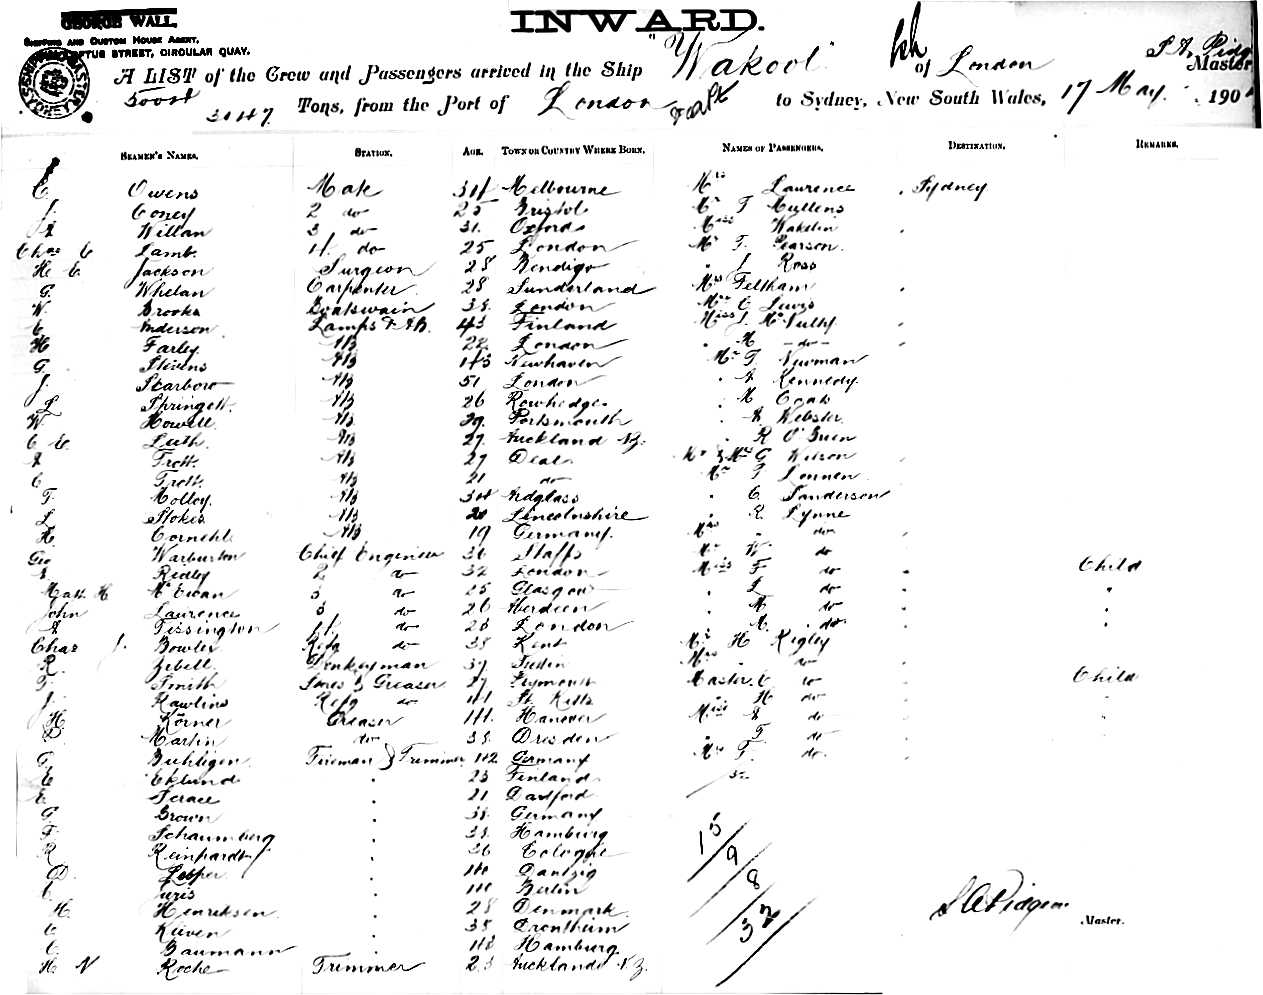 GEORGE WALL,
SHIPPING AND CUSTOM HOUSE AGENT,
STREET, CIRCULAR QUAY.
INWARD.
"Wakool" of London
Master,
A LIST of the Crew and Passengers arrived in the Ship
Tons, from the Port of London to Sydney, New South Wales, 17 May 190
SEAMEN'S NAMES. STATION. AGE. TOWN OR COUNTRY WHERE BORN. NAMES OF PASSENGERS. DESTINATION. REMARKS.
C Owens Mate 34 Melbourne Mrs Laurence Sydney
J. Coney 2 do 25 Bristol Mr T Mullens
Willan 3 do 31 Oxford Miss Wakelin
Chas C Lamb. 4 do 25 London Mr T. Pearson
H. E Jackson Surgeon 28 Bendigo " J Ross
G. Whelan Carpenter 28 Sunderland Mrs Feltham
W. Brooks Boatswain 38 London Mrs C Lewis
C Anderson Lamps & AB. 43 Finland Miss J. McNulty
H Farley AB 22 London " M - do -
G. Stivens AB 43 Newhaven Mr T Newman
J. Scarboro AB 51 London " A Kennedy.
L Springett AB 26 Rowhedge " M Coak
W. Howell AB 29 Portsmouth " A Webster
C E Luth AB 27 Auckland N.Z. " R O'Brien
A Trott. AB 27 Deal Mr & Mrs G Wilson
C Trott. AB 21 do Mr T Lonnen
T. Molloy. AB 34 Ardglass " C Sanderson
L Stokes AB 20 Lincolnshire " R. Lynne
H. Cornehl AB 19 Germany. Mrs " do
Geo Warburton Chief Engineer 36 Staffs Mr W. do
A Ridley 2 do 32 London Miss F do Child
Matt. H McEwan 3 do 25 Glasgow " L do "
John Laurence 3 do 26 Aberdeen " M do "
A Tissington 4 do 28 London " A. do "
Chas J. Bowler Refg do 38 Kent Mr H Rigley
R. Zebell Donkeyman 37 Mrs " do
T. Smith & Greaser 27 Plymouth Master C do Child
J. Rawlins Refg do 41 St. Kitts " H do "
H Körner Greaser 41 Hanover Miss A do "
Martin do 38 Dresden " T do
G. Buhligen Fireman & Trimmer 42 Germany Mr T. do.
E Eklund " 23 Finland 32
E. " 21 Dartford
G. Brown " 38 Germany
F. Schaumberg " 38 Hamburg 15
R Reinhardt " 36 Cologne 9
D. " 40 Dantzig 8
C Juris " 40 Berlin 32
H. Henriksen " 28 Denmark
C Kieven " 38 Drontheim
C. Baumann " 48 Hamburg
H N Roche Trimmer 23 Auckland N.Z.
Master.